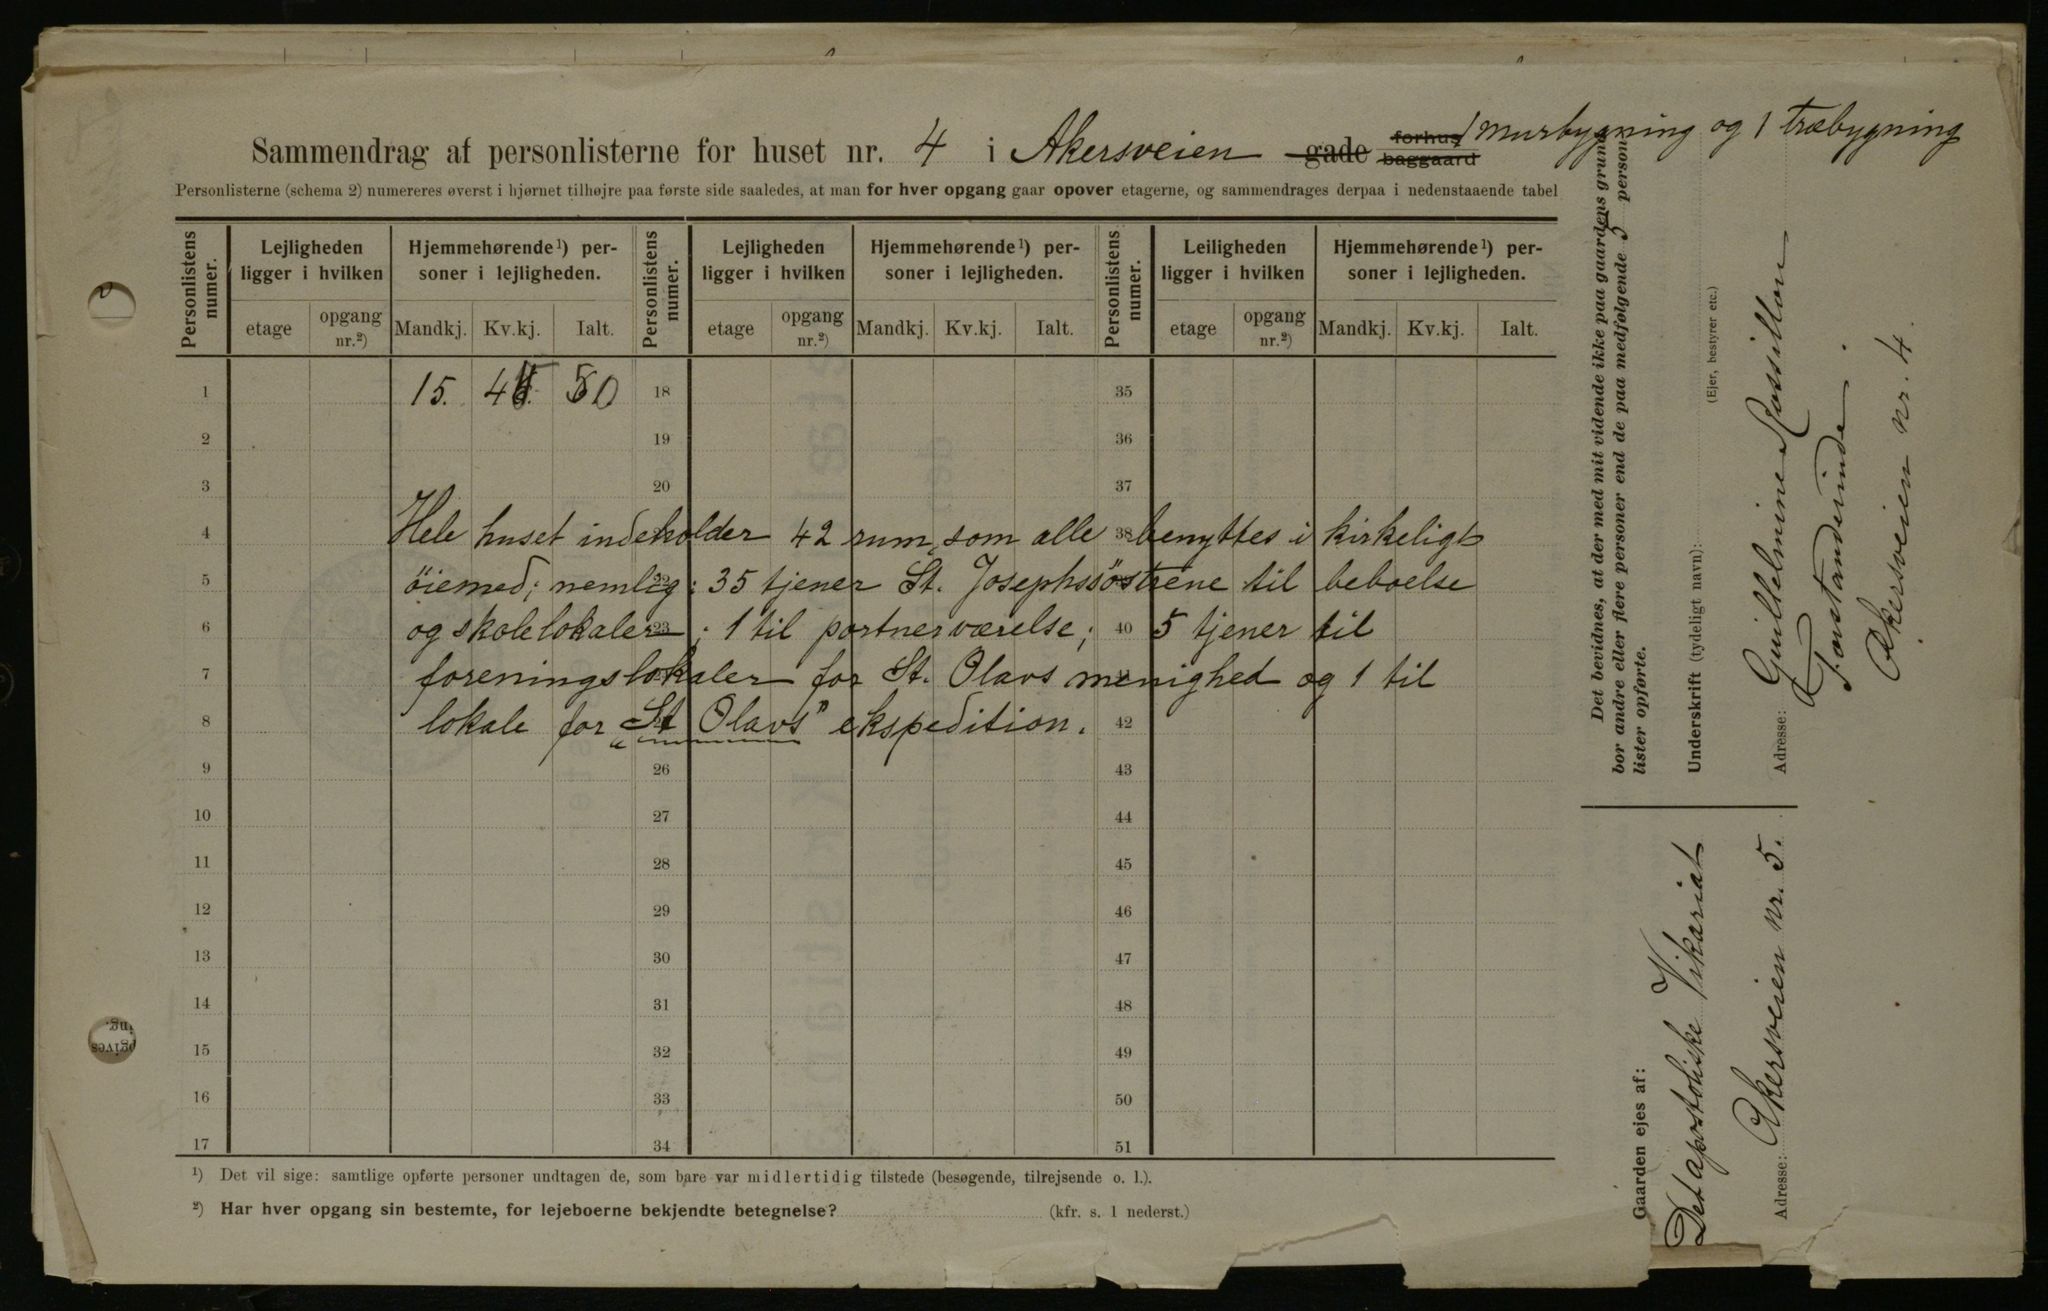 Sammendrag af personlisterne for huset nr. 4 i Akersveien gade forhus baggaard 1 murbygning og 1 træbygning
Personlisterne (schema 2) numereres øverst i hjørnet tilhøjre paa første side saaledes, at man for hver opgang gaar opover etagerne, og sammendrages derpaa i nedenstaaende tabel
Personlistens numer. Lejligheden ligger i hvilken Hjemmehørende¹) personer i lejligheden. Personlistens numer. Lejligheden ligger i hvilken Hjemmehørende¹) personer i lejligheden. Personlistens numer. Leiligheden ligger i hvilken Hjemmehørende¹) personer i lejligheden.
etage opgang nr.²) Mandkj. Kv.kj. Ialt. etage opgang nr.²) Mandkj. Kv.kj. Ialt. etage opgang nr.²) Mandkj. Kv.kj. Ialt.
1 15. 45 50 18 35
2 19 36
3 20 37
4 38
Hele huset indeholder 42 rum, som alle benyttes i kirkeligt
5 22
øiemed; nemlig: 35 tjener St. Josephssøstrene til beboelse
6 23 40
og skolelokaler; 1 til portnerværelse; 5 tjener til
7
foreningslokaler for St. Olavs menighed og 1 til
8 42
lokale for „St Olavs” ekspedition.
9 26 43
10 27 44
11 28 45
12 29 46
13 30 47
14 31 48
15 32 49
16 33 50
17 34 51
¹) Det vil sige: samtlige opførte personer undtagen de, som bare var midlertidig tilstede (besøgende, tilrejsende o. l.).
²) Har hver opgang sin bestemte, for lejeboerne bekjendte betegnelse? (kfr. s. 1 nederst.)
Det bevidnes, at der med mit vidende ikke paa gaardens grund
bor andre eller flere personer end de paa medfølgende 5 person-
lister opførte.
Underskrift (tydeligt navn):
(Ejer, bestyrer etc.)
Guillelmine Rossillon
Forstanderinde.
Adresse: Akersveien nr. 4.
Gaarden ejes af:
Det apostoliske Vikariat
Adresse: Akersveien nr. 5.